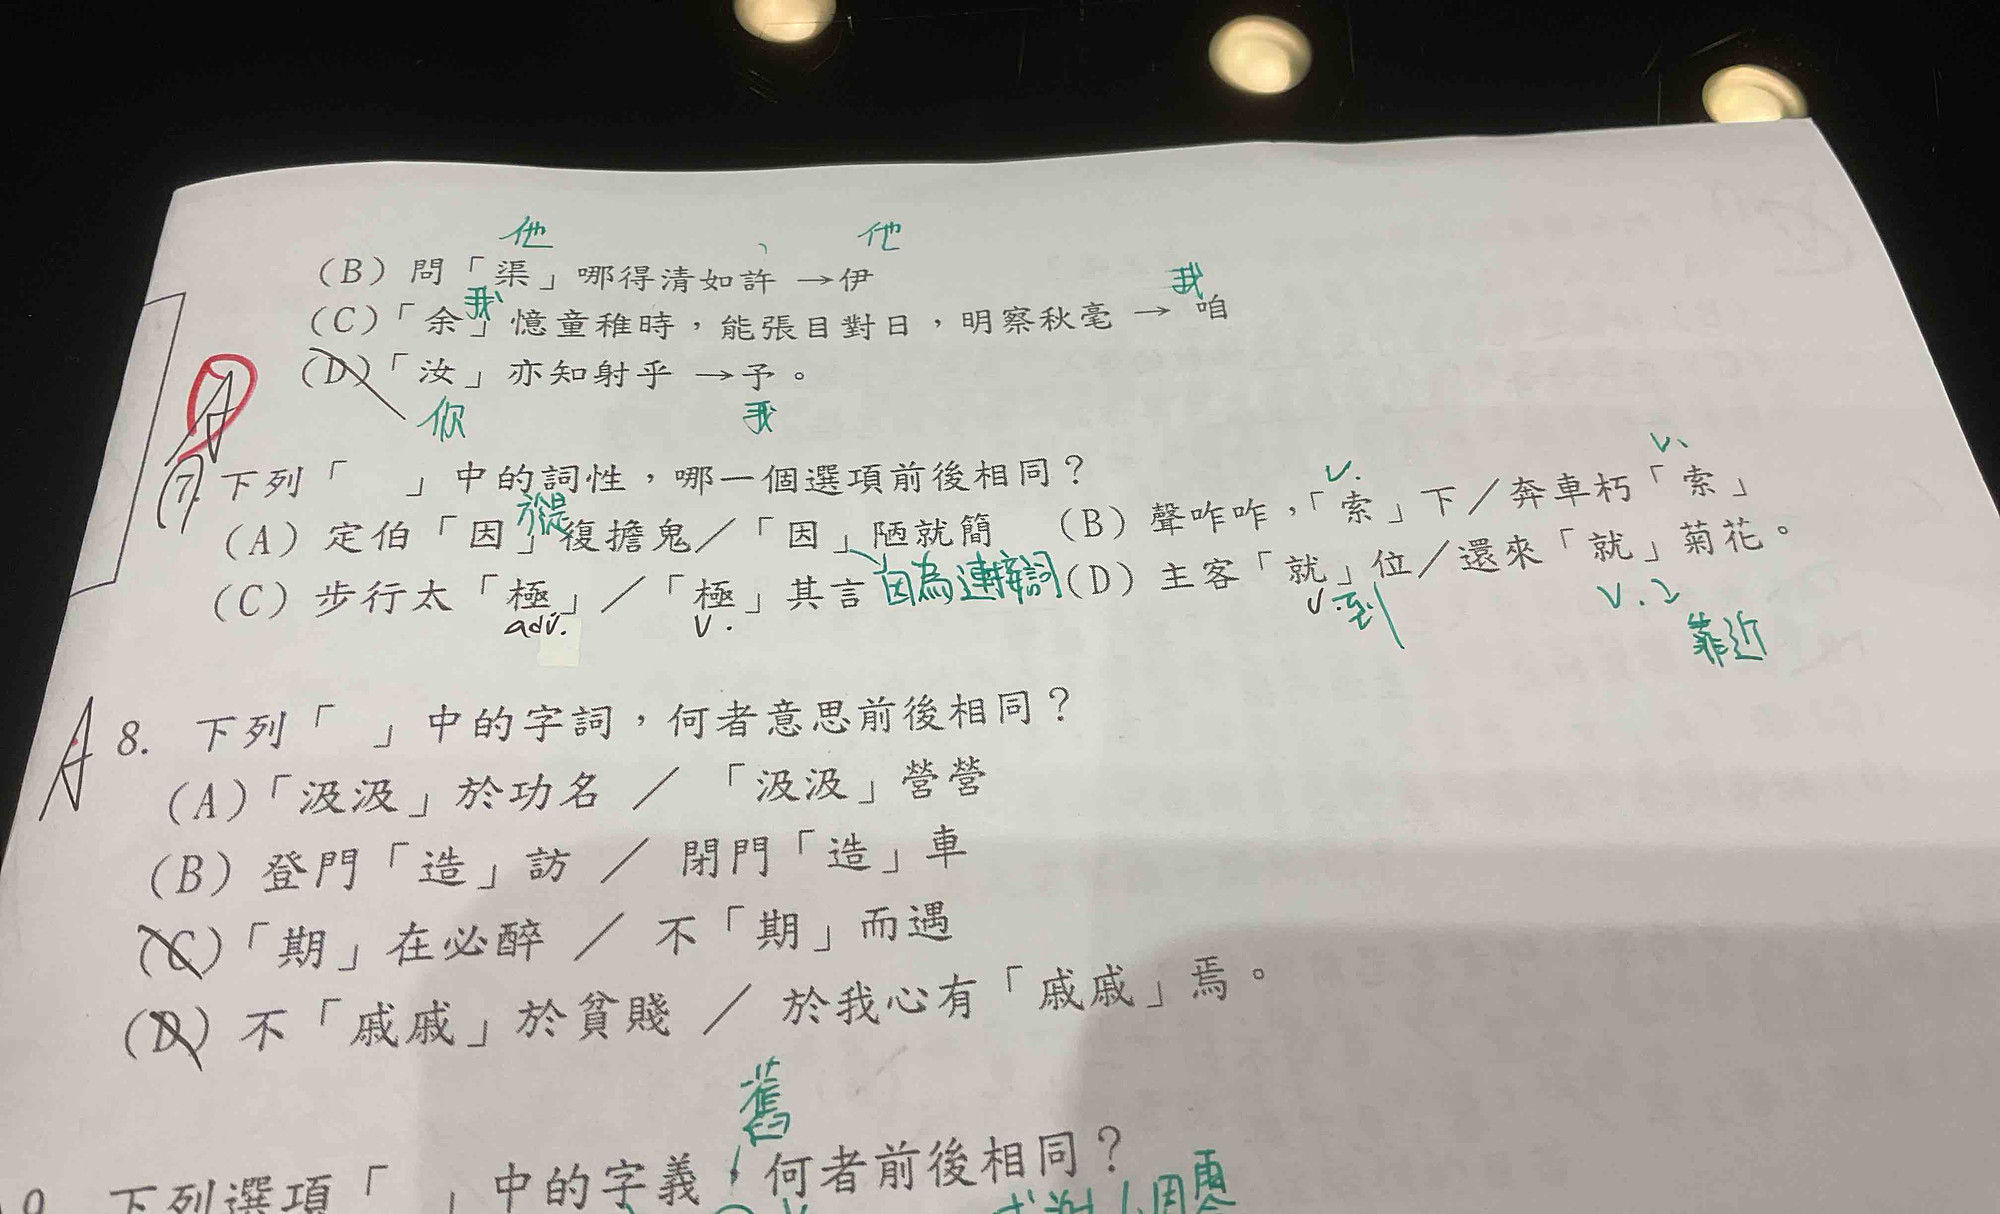 他 他
(B) 問「渠」哪得清如許 →伊
我 我
(C)「余」憶童稚時，能張目對日，明察秋毫 → 咱
(D)「汝」亦知射乎 →予。
你 我
A
7. 下列「 」中的詞性，哪一個選項前後相同？
於是 v. v.
(A) 定伯「因」復擔鬼／「因」陋就簡 (B) 聲咋咋，「索」下／奔車朽「索」
(C) 步行太「極」／「極」其言 因為連接詞 (D) 主客「就」位／還來「就」菊花。
adv. v. v.到 v.
靠近
A 8. 下列「 」中的字詞，何者意思前後相同？
(A)「汲汲」於功名 ／ 「汲汲」營營
(B) 登門「造」訪 ／ 閉門「造」車
(C)「期」在必醉 ／ 不「期」而遇
(D) 不「戚戚」於貧賤 ／ 於我心有「戚戚」焉。
舊
9. 下列選項「 」中的字義，何者前後相同？